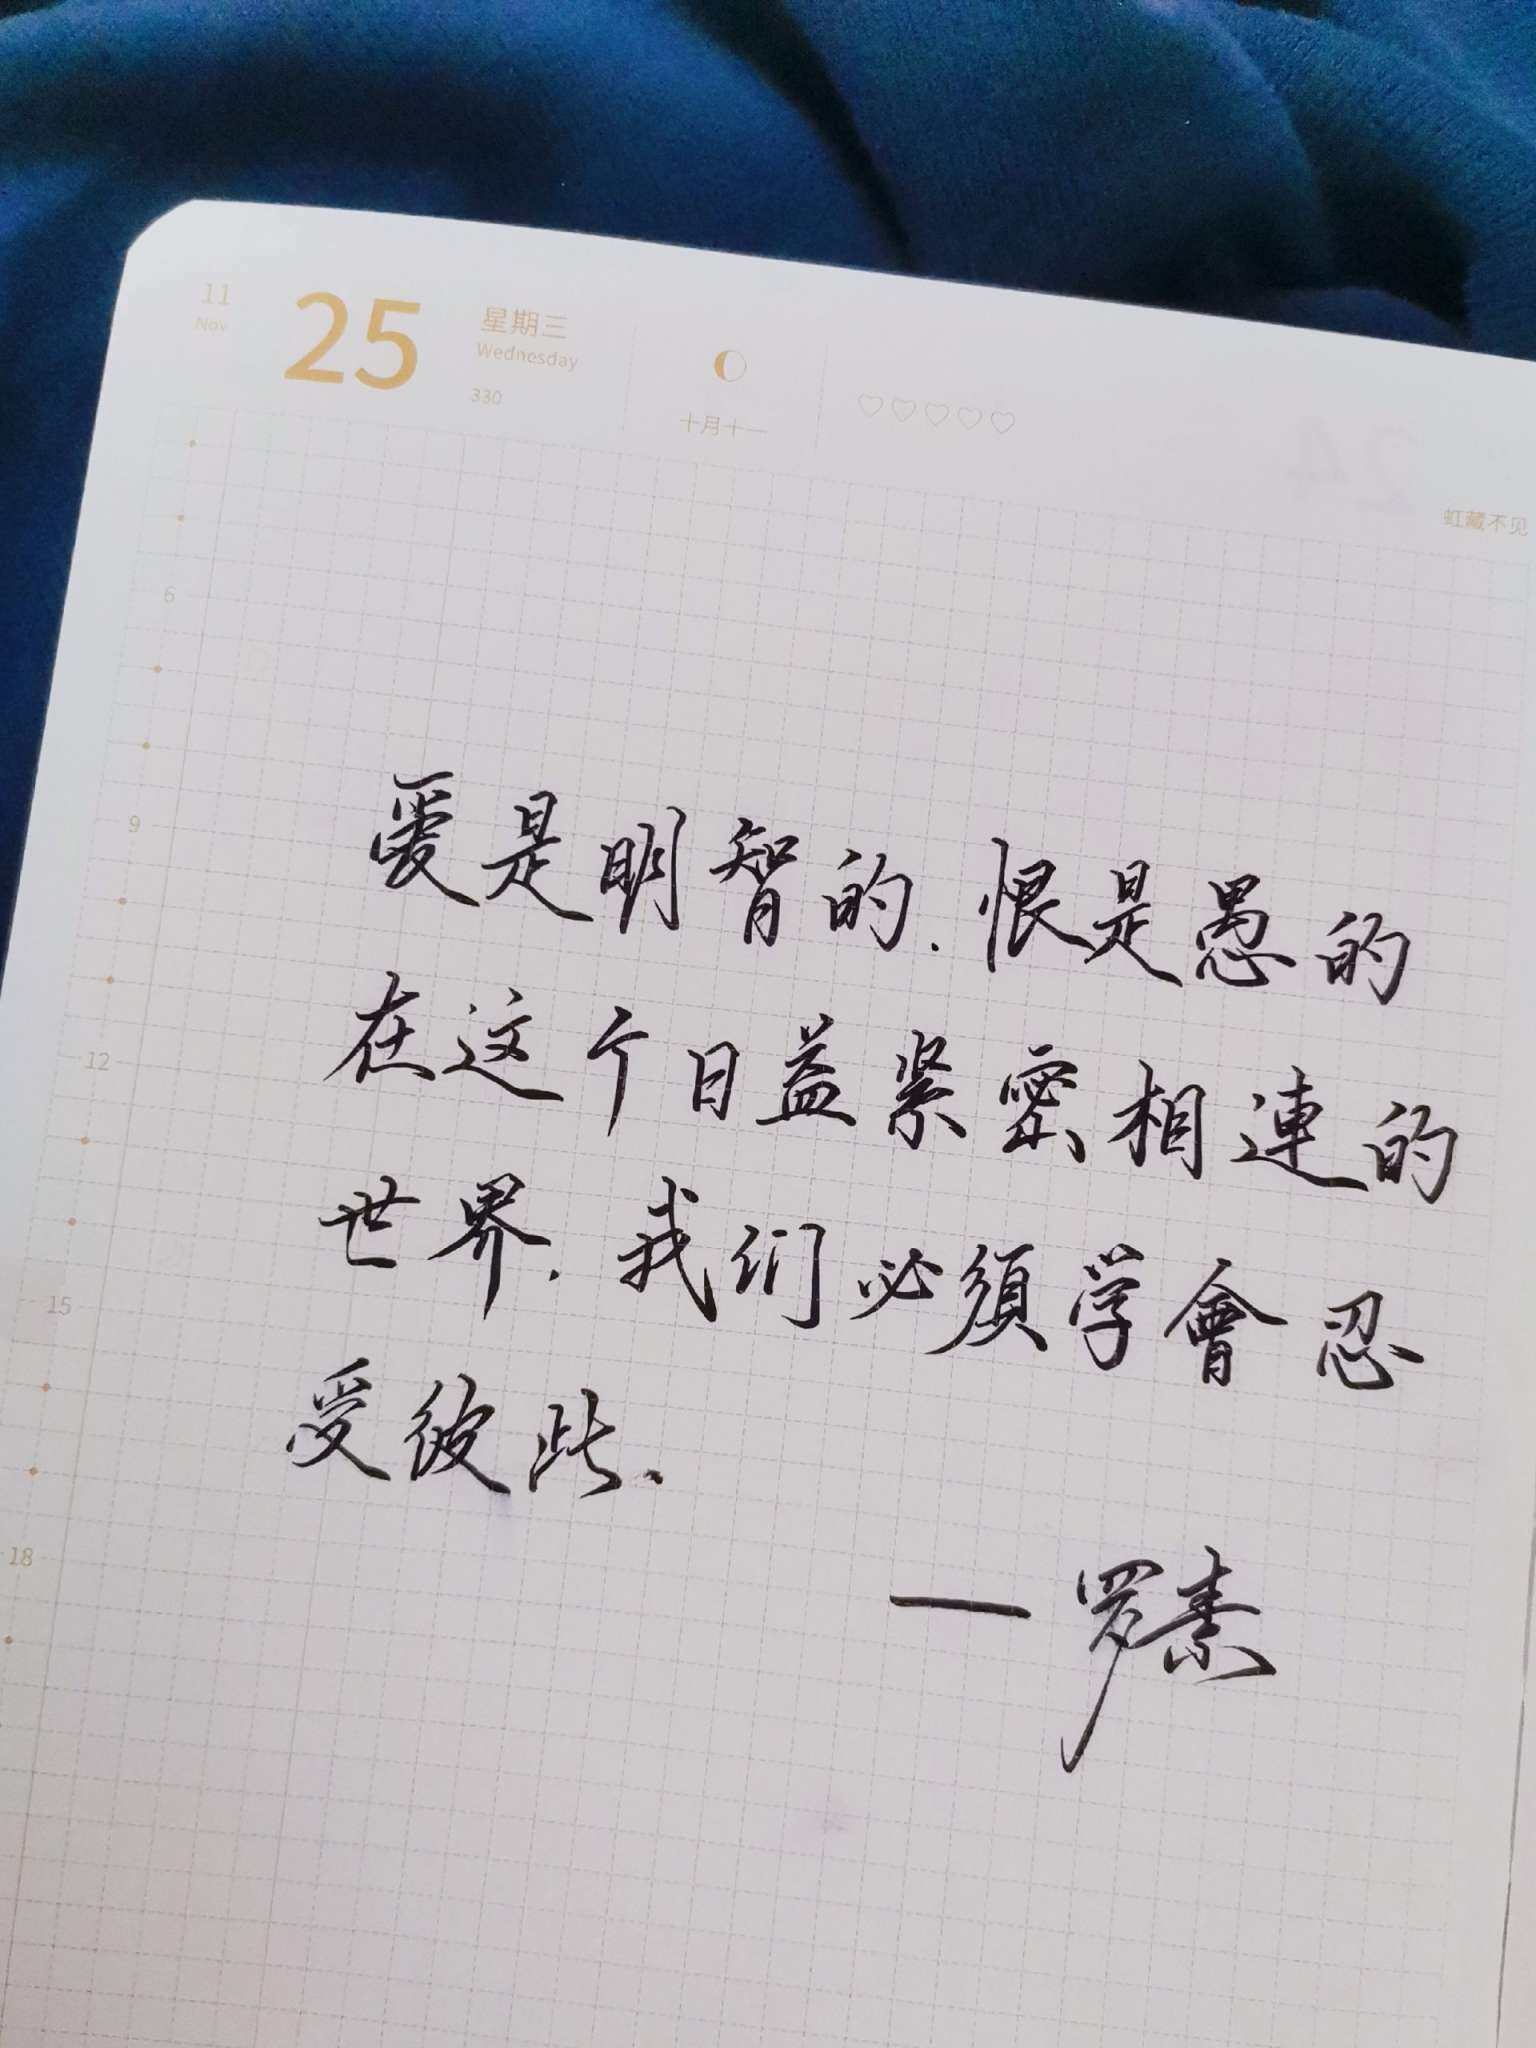 11
Nov
25
星期三
Wednesday
330
十月十一
24
虹藏不见
6
9
12
15
18
爱是明智的.恨是愚的
在这个日益紧密相連的
世界.我们必須学會忍
受彼此.
一罗素